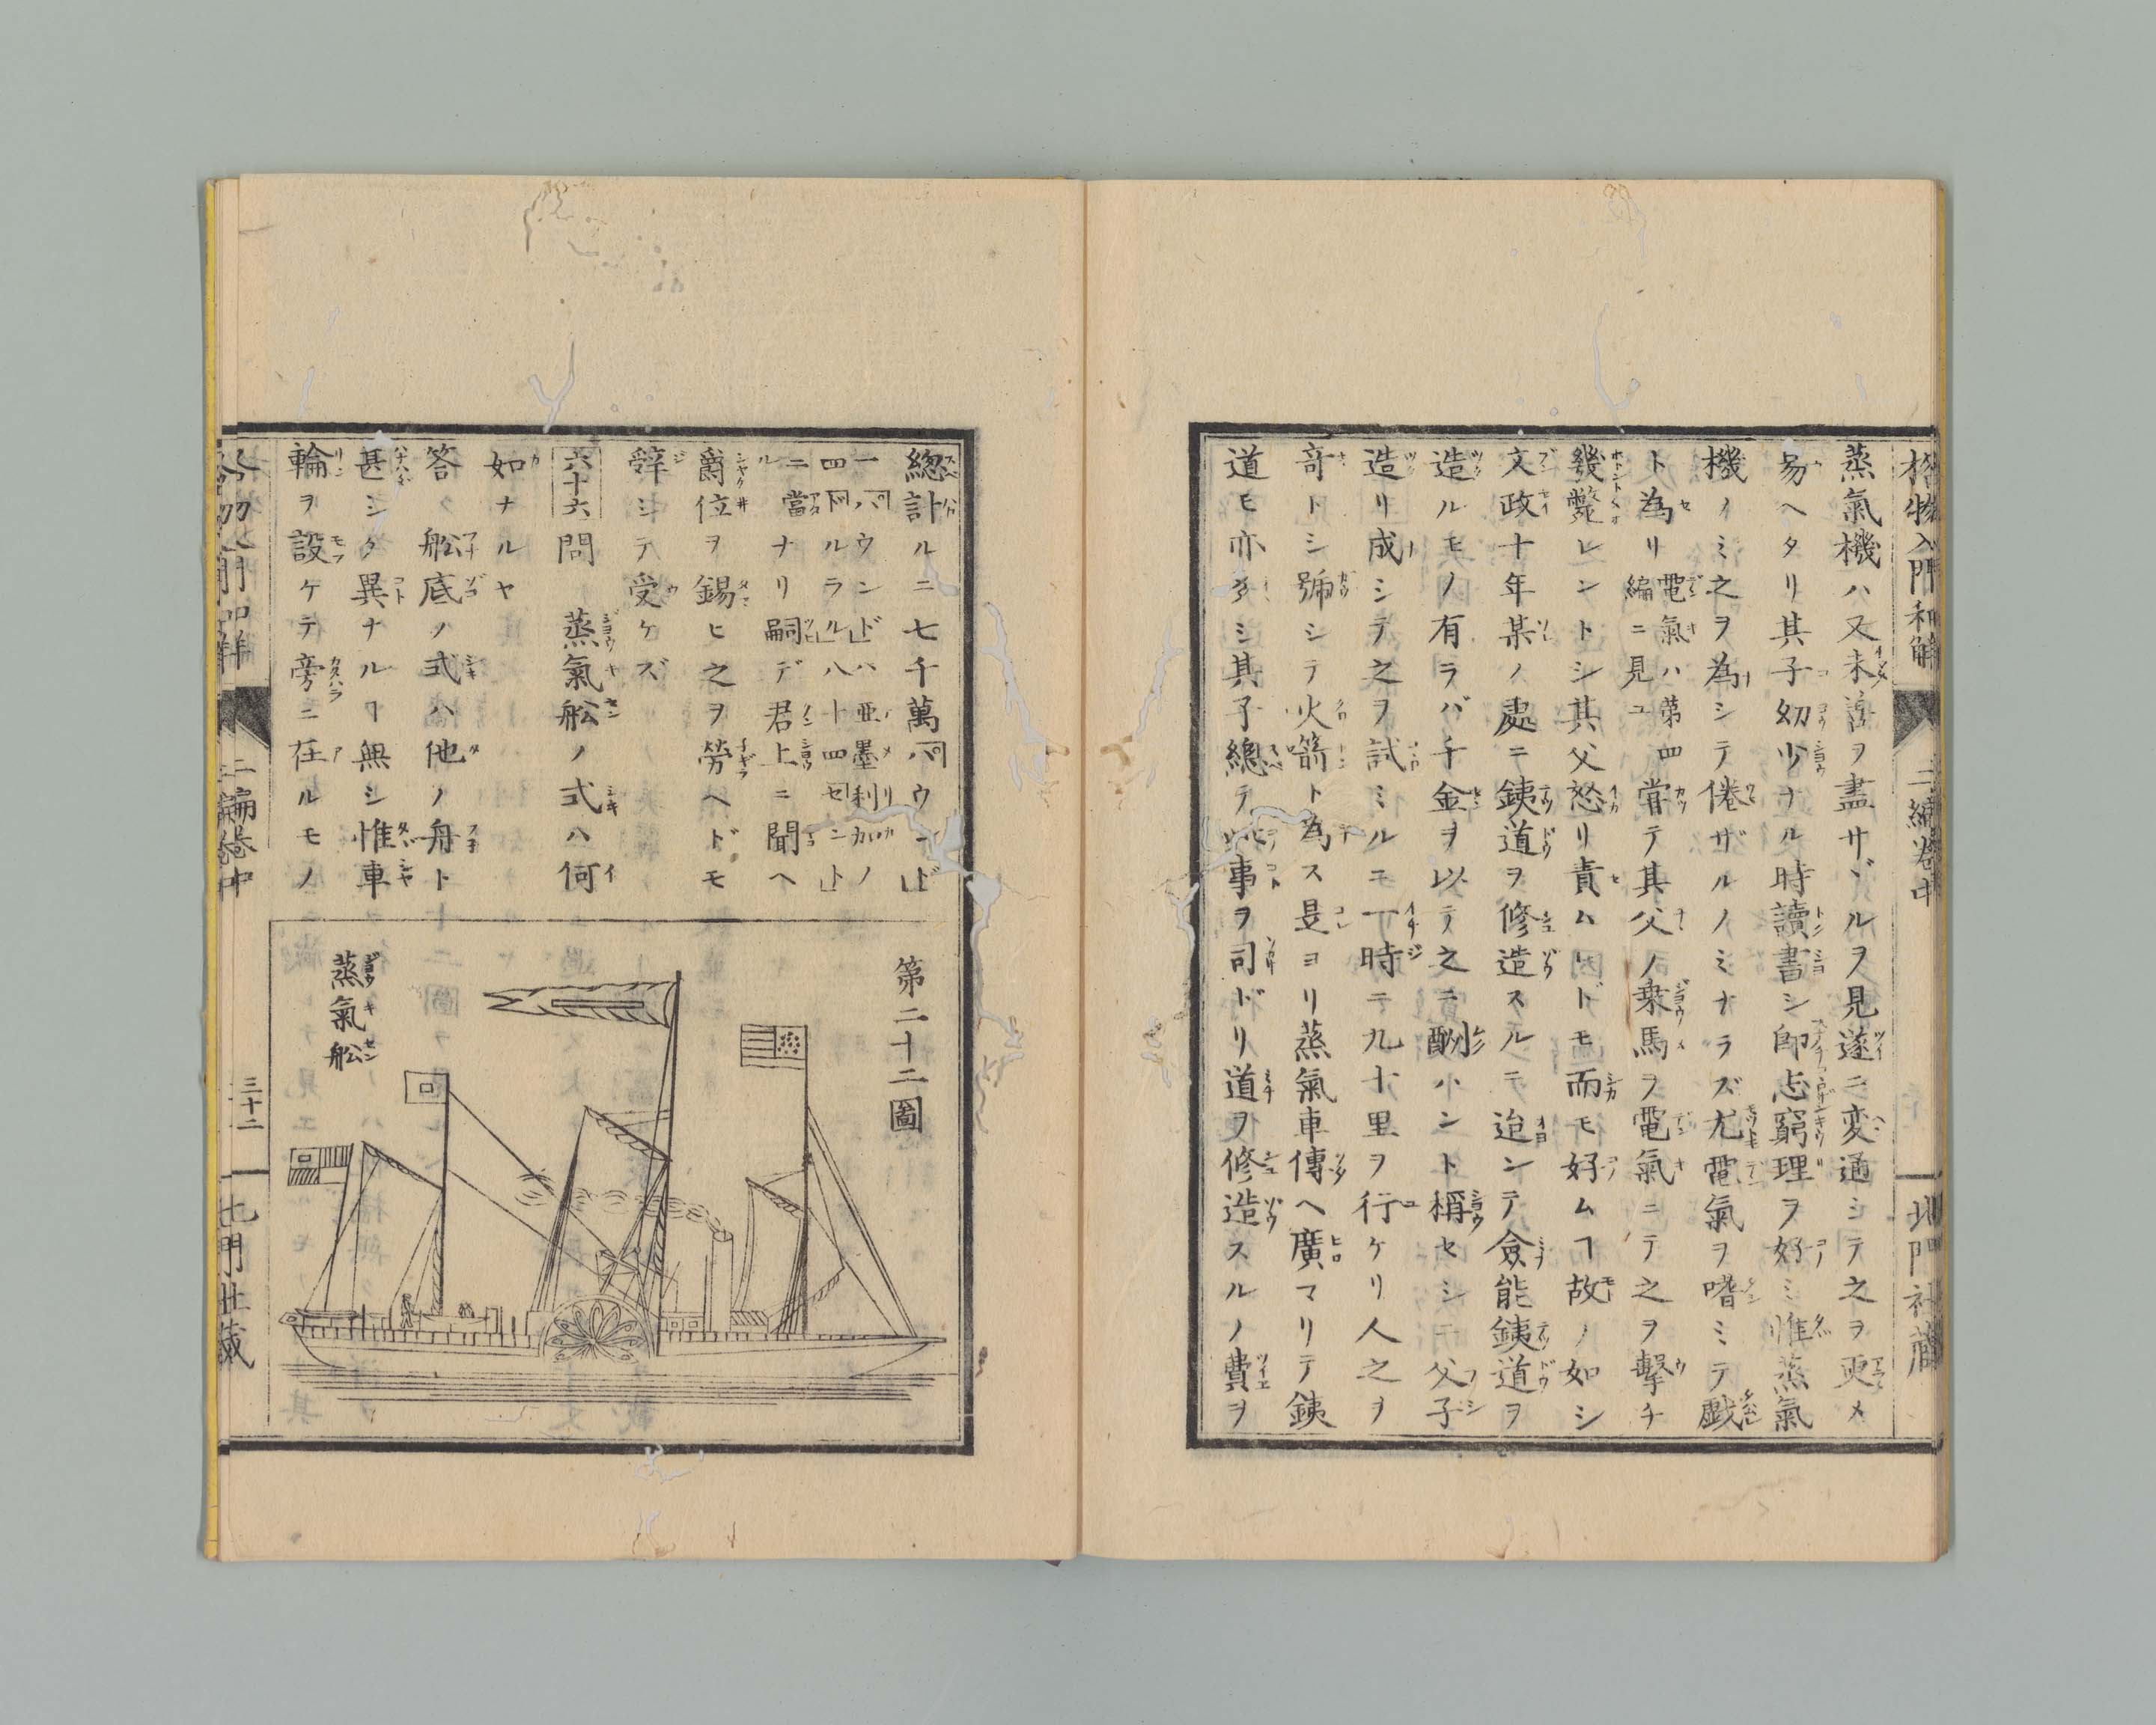 格物入門和解
二編卷中
北門社藏
蒸氣機ハ又未善ヲ盡サヾルヲ見遂ニ変通シテ之ヲ更メ
易ヘタリ其子幼少ナル時讀書シ即忐窮理ヲ好ミ惟蒸氣
機ノミ之ヲ為シテ倦ザルノミナラズ尤電氣ヲ嗜ミテ戯
ト為リ電氣ハ第四編ニ見ユ嘗テ其父ノ乗馬ヲ電氣ニテ之ヲ擊チ
幾斃レントシ其父怒リ責ムレドモ而モ好ムヿ故ノ如シ
文政十年某ノ處ニ銕道ヲ修造スルニ迨ンテ僉能銕道ヲ
造ルモノ有ラバ千金ヲ以テ之ニ酬ハント稱セシニ父子
造リ成シテ之ヲ試ミルニ一時ニ九十里ヲ行ケリ人之ヲ
竒トシ號シテ火箭ト為ス是ヨリ蒸氣車傳ヘ廣マリテ銕
道モ亦多シ其子總テ此事ヲ司ドリ道ヲ修造スルノ費ヲ
總計ルニ七千萬「パウンド」
一「パウンド」ハ亜墨利加ノ
四「ドルラル」八十四「セント」
ニ當ナリ嗣デ君上ニ聞ヘ
爵位ヲ錫ヒ之ヲ勞ヘドモ
辞シテ受ケズ
六十六問 蒸氣舩ノ式ハ何
如ナルヤ
答ク舩底ノ式ハ他ノ舟ト
甚シク異ナルヿ無シ惟車
輪ヲ設ケテ旁ニ在ルモノ
第二十二圖
蒸氣舩
二編卷中
三十二
北門社藏